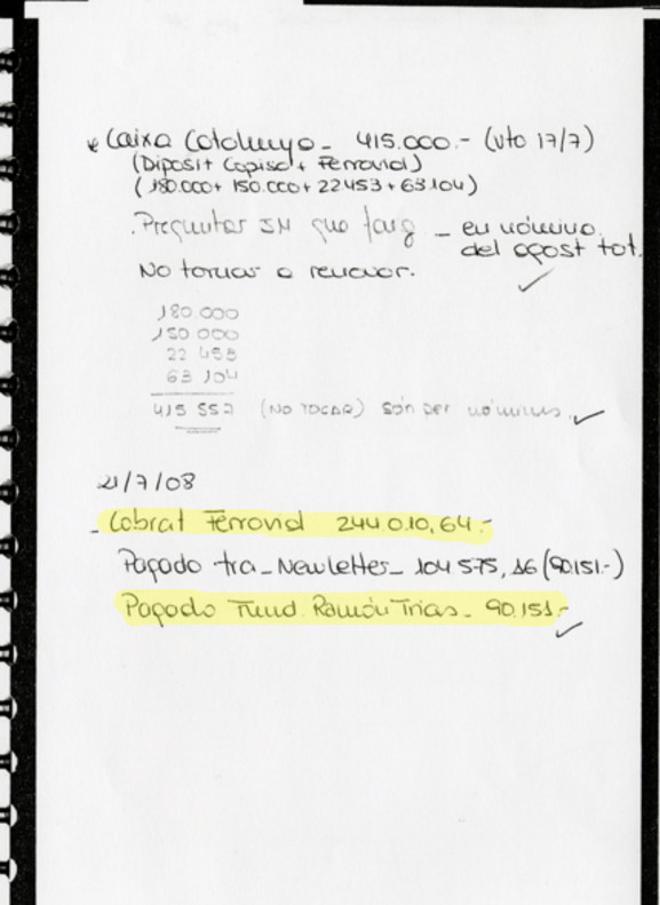 * Caixa Catalunya - 415.000.- (vto 17/7)
(Diposit Copisa + Ferrovial)
(180.000 + 150.000 + 22453 + 63104)
. Preguntar JM que faig - en nómina
del agost tot.
No tornar a renovar.
180.000
150.000
22 453
63 104
415 557 (NO TOCAR) són per nómines.
21/7/08
- Cobrat Ferrovial 244.010,64.-
Pagado tra - Newletter - 104 575,16 (90.151.-)
Pagado Fund. Ramón Trias - 90.151.-